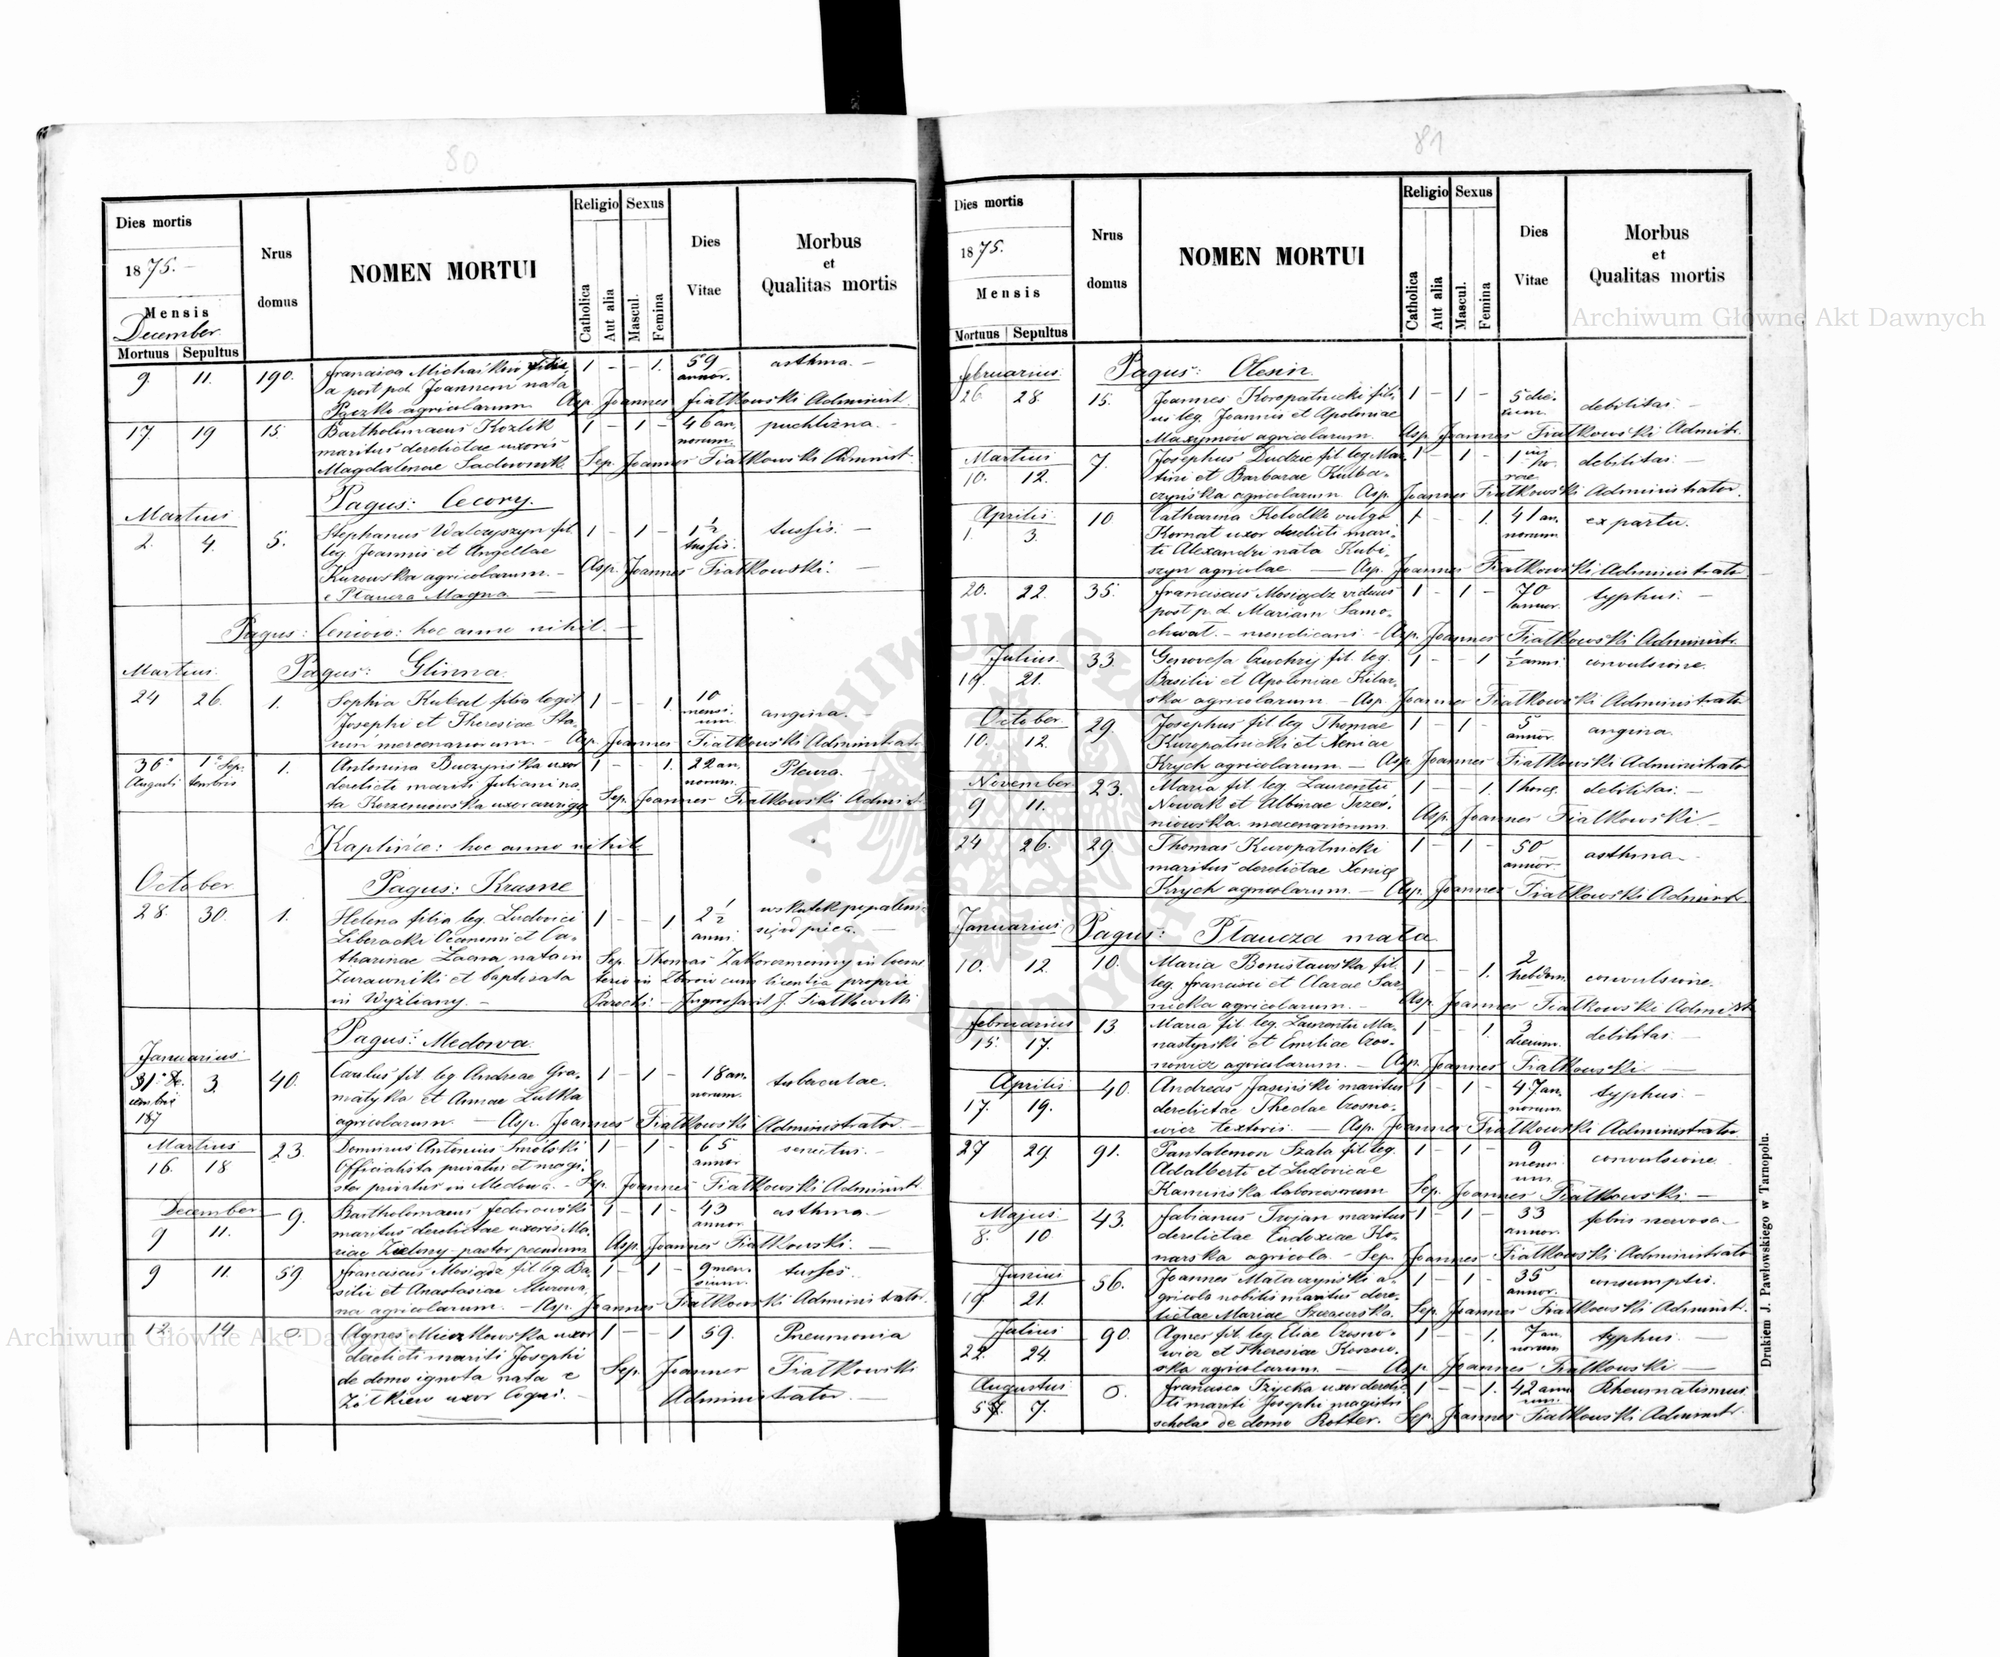 80
Dies mortis
1875.
Mensis
December
Mortuus Sepultus
Nrus domus
NOMEN MORTUI
Religio
Catholica
Aut alia
Sexus
Mascul.
Femina
Dies Vitae
Morbus et Qualitas mortis
9. 11. 190. Francisca Michalków 1 - - 1. 59 annor. asthma. -
a post p.d. Joannem nata
Pączko agricolarum. Asp. Joannes Fiatkowski Administ.
17. 19 15. Bartholomaeus Kozlik 1 - 1 - 46 an. puchlizna. -
maritus derelictae uxoris norum.
Magdalenae Sadownik Sep. Joannes Fiatkowski Administ.
Pagus: Cecory.
Martius
2. 4. 5. Stephanus Walczyszyn fil. 1 - 1 - 1 1/2 tussis. tussis. -
leg. Joannis et Angellae
Kurowska agricolarum. - Asp. Joannes Fiatkowski. -
e Plaucza Magna -
Pagus: Ceniow: hoc anno nihil. -
Martius. Pagus: Glinna.
24 26. 1. Sophia Kubal filia legit 1 - - 1. 10 mensium angina. -
Josephi et Theresiae
mercenariorum. - Asp. Joannes Fiatkowski Administrator
30° 1° Sep. 1. Antonina Buczyńska uxor 1 - - 1. 22 an. Pleura. -
Augusti tembris derelicti mariti Juliani na- norum.
ta Korzeniowska uxor aurigae Sep. Joannes Fiatkowski Administ.
Kaplińce: hoc anno nihil.
October Pagus: Krasne
28. 30. 1. Helena filia leg. Ludovici 1 - - 1 2 1/2 anni. wskutek popaleni
Liberacki et Ca- się w piecu. -
tharinae natam Sep. Thomas in coeme
Zurawniki et baptisata terio in Zborow cum licentia proprii
in Wyzliany. - Parochi. - J. Fiatkowski
Pagus: Medowa.
Januarius
31° De- 3. 40. Carolus fil. leg. Andreae Gra- 1 - 1 - 18 an. tuberculae.
cembris matyka et Annae Lutka norum.
187 agricolarum. - Asp. Joannes Fiatkowski Administrator. -
Martius
16. 18 23. Dominus Antonius Smólski 1 - 1 - 65 annor senectus. -
Officialista privatus et magi-
ster privatus in Medowa. - Sep. Joannes Fiatkowski Administ.
December
9 11. 9. Bartholomaeus Fedorowski 1 - 1 - 43 annor asthma. -
maritus derelictae uxoris Ma-
riae Zielony pastor pecudum Asp. Joannes Fiatkowski. -
9 11. 59 Franciscus Mosigdz fil. leg. Ba- 1 - 1 - 9 men- tusses. -
silii et Anastasiae sium.
agricolarum. - Asp. Joannes Fiatkowski Administrator.
12. 14 0. Agnes Mierzkowska uxor 1 - - 1 59. Pneumonia
derelicti mariti Josephi
de domo ignota nata e Sep. Joannes Fiatkowski
Zółkiew uxor Coqui. - Administrator. -
81
Dies mortis
1875.
Mensis
Mortuus Sepultus
Nrus domus
NOMEN MORTUI
Religio
Catholica
Aut alia
Sexus
Mascul.
Femina
Dies Vitae
Morbus et Qualitas mortis
Februarius Pagus: Olesin.
26 28 15. Joannes Koropatnicki fili- 1 - 1 - 5 die- debilitas. -
us leg. Joannis et Apoloniae rum.
Maxymów agricolarum. Asp. Joannes Fiatkowski Administ.
Martius
10. 12. 7. Josephus Dudzic fil. leg. Mar- 1 1 - 1 debilitas. -
tini et Barbarae Kulba-
czyńska agricolarum. Asp. Joannes Fiatkowski Administrator.
Aprilis
1. 3. 10 Catharina Kolodko vulgo 1 - 1. 41 an- ex partu.
Kornat uxor derelicti mari- norum
ti Alexandri nata Kubi-
szyn agricolae. - Asp. Joannes Fiatkowski Administrator
20. 22. 35. Franciscus Mosigdz viduus 1 - 1 - 70 annor. typhus. -
post p.d. Mariam Samo-
chwat. - mendicans. - Asp. Joannes Fiatkowski Administ.
Julius
19. 21. 33. Genovefa Czuchrij fil. leg. 1 - - 1 1/2 anni convulsione.
Basilii et Apoloniae Kilar-
ska agricolarum - Asp. Joannes Fiatkowski Administrator
October
10. 12. 29. Josephus fil. leg. Thomae 1 - 1 - 5 annor. angina.
Kuropatnicki et Xeniae
Krych agricolarum. - Asp. Joannes Fiatkowski Administrator
November
9 11. 23. Maria fil. leg. Laurentii 1 - - 1. 1 horae. debilitas. -
Nowak et Albinae Trze-
niowska mercenariorum. Asp. Joannes Fiatkowski. -
24 26. 29 Thomas Kuropatnicki 1 - 1 - 50 annor. asthma -
maritus derelictae Xeniae
Krych agricolarum. - Asp. Joannes Fiatkowski Administ.
Januarius Pagus: Plaucza mała
10. 12. 10. Maria Bonislawska fil. 1 - - 1. 2 hebdom. convulsione.
leg. Francisci et Clarae Sar-
nicka agricolarum. - Asp. Joannes Fiatkowski Administ.
Februarius
15. 17. 13 Maria fil. leg. Laurentii Ma- 1 - 1. 3 dierum. debilitas. -
nastyrski et Emiliae Czos-
nowicz agricolarum. - Asp. Joannes Fiatkowski. -
Aprilis
17. 19. 40. Andreas Jasiński maritus 1 - 1 - 47 an- typhus. -
derelictae Theclae Czosno- norum
wicz textoris. - Asp. Joannes Fiatkowski Administrator.
27 29. 91. Pantalemon Szala fil. leg. 1 - 1 - 9 mensium convulsione
Adalberti et Ludovicae
Kamińska laboriosorum Sep. Joannes Fiatkowski -
Majus.
8. 10. 43. Fabianus Trojan maritus 1 1 - 33 annor. febris nervosa. -
derelictae Eudoxiae Ko-
narska agricola. - Sep. Joannes Fiatkowski Administrator
Junius
19 21. 56. Joannes Mataczyński a- 1 - 1 - 35 annor. consumptio.
gricola nobilis maritus dere-
lictae Mariae Sep. Joannes Fiatkowski Administ.
Julius
22. 24. 90. Agnes fil. leg. Eliae Czosno- 1 - - 1. 7 an- typhus. -
wicz et Theresiae norum
agricolarum. - Asp. Joannes Fiatkowski -
Augustus
5 7. 0. Francisca Tzycka uxor derelic- 1 - - 1. 42 anno- Rheumatismus
ti mariti Josephi magistri rum.
scholae de domo Rotter. Sep. Joannes Fiatkowski Administr.
Drukiem J. Pawłowskiego w Tarnopolu.
Archiwum Główne Akt Dawnych
Archiwum Główne Akt Dawnych